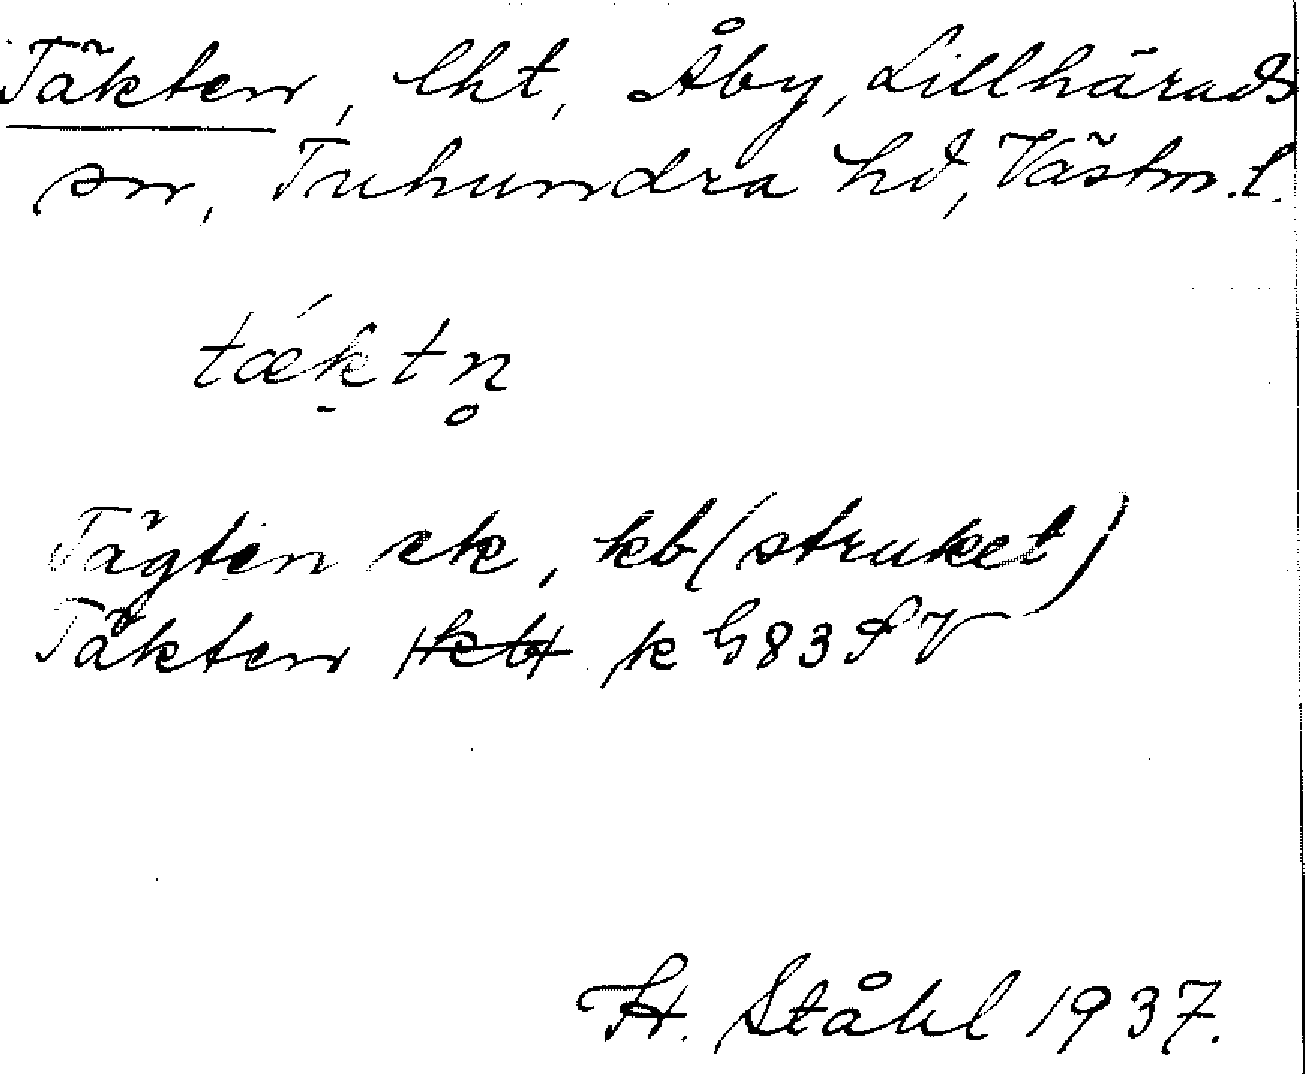 Täkten, lht, Åby, Lillhärads
sn, Tuhundra hd, Västm. l.
tǽk̠tn̥
Tägten ek, kb (struket)
Täkten k G83SV
H. Ståhl 1937.